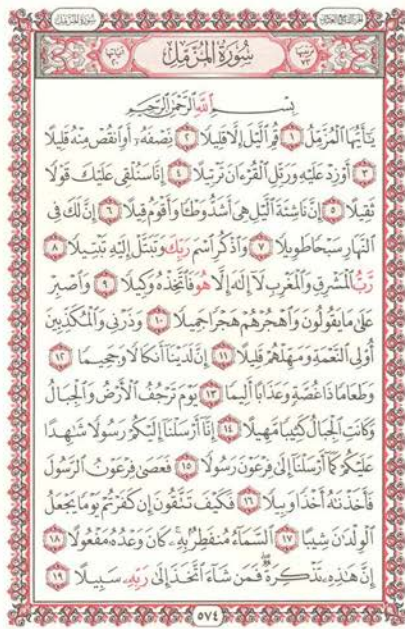 سُورَةُ المُزَّمِّل
سُورَةُ المُزَّمِّل
ترتيبها ٧٣
آياتها ٢٠
بِسْمِ ٱللَّهِ ٱلرَّحْمَٰنِ ٱلرَّحِيمِ
يَٰٓأَيُّهَا ٱلْمُزَّمِّلُ ١ قُمِ ٱلَّيْلَ إِلَّا قَلِيلًا ٢ نِّصْفَهُۥٓ أَوِ ٱنقُصْ مِنْهُ قَلِيلًا
٣ أَوْ زِدْ عَلَيْهِ وَرَتِّلِ ٱلْقُرْءَانَ تَرْتِيلًا ٤ إِنَّا سَنُلْقِى عَلَيْكَ قَوْلًا
ثَقِيلًا ٥ إِنَّ نَاشِئَةَ ٱلَّيْلِ هِىَ أَشَدُّ وَطْـًٔا وَأَقْوَمُ قِيلًا ٦ إِنَّ لَكَ فِى
ٱلنَّهَارِ سَبْحًا طَوِيلًا ٧ وَٱذْكُرِ ٱسْمَ رَبِّكَ وَتَبَتَّلْ إِلَيْهِ تَبْتِيلًا ٨
رَّبُّ ٱلْمَشْرِقِ وَٱلْمَغْرِبِ لَآ إِلَٰهَ إِلَّا هُوَ فَٱتَّخِذْهُ وَكِيلًا ٩ وَٱصْبِرْ
عَلَىٰ مَا يَقُولُونَ وَٱهْجُرْهُمْ هَجْرًا جَمِيلًا ١٠ وَذَرْنِى وَٱلْمُكَذِّبِينَ
أُو۟لِى ٱلنَّعْمَةِ وَمَهِّلْهُمْ قَلِيلًا ١١ إِنَّ لَدَيْنَآ أَنكَالًا وَجَحِيمًا ١٢
وَطَعَامًا ذَا غُصَّةٍ وَعَذَابًا أَلِيمًا ١٣ يَوْمَ تَرْجُفُ ٱلْأَرْضُ وَٱلْجِبَالُ
وَكَانَتِ ٱلْجِبَالُ كَثِيبًا مَّهِيلًا ١٤ إِنَّآ أَرْسَلْنَآ إِلَيْكُمْ رَسُولًا شَٰهِدًا
عَلَيْكُمْ كَمَآ أَرْسَلْنَآ إِلَىٰ فِرْعَوْنَ رَسُولًا ١٥ فَعَصَىٰ فِرْعَوْنُ ٱلرَّسُولَ
فَأَخَذْنَٰهُ أَخْذًا وَبِيلًا ١٦ فَكَيْفَ تَتَّقُونَ إِن كَفَرْتُمْ يَوْمًا يَجْعَلُ
ٱلْوِلْدَٰنَ شِيبًا ١٧ ٱلسَّمَآءُ مُنفَطِرٌۢ بِهِۦ ۚ كَانَ وَعْدُهُۥ مَفْعُولًا ١٨
إِنَّ هَٰذِهِۦ تَذْكِرَةٌ ۖ فَمَن شَآءَ ٱتَّخَذَ إِلَىٰ رَبِّهِۦ سَبِيلًا ١٩
٥٧٤